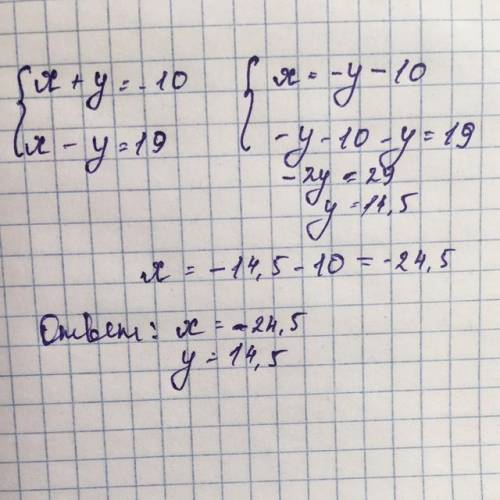 {x + y = -10
x - y = 19
{x = -y - 10
-y - 10 - y = 19
-2y = 29
y = 14,5
x = -14,5 - 10 = -24,5
Ответ: x = -24,5
y = 14,5